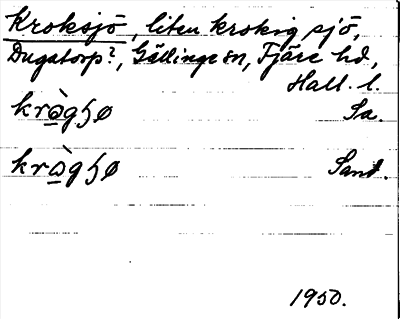 Kroksjö, liten krokig sjö,
Dugatorp?, Gällinge sn, Fjäre hd,
Hall. l.
krò̲gꞕø Sa.
krò̲gꞕø Sand.
1950.